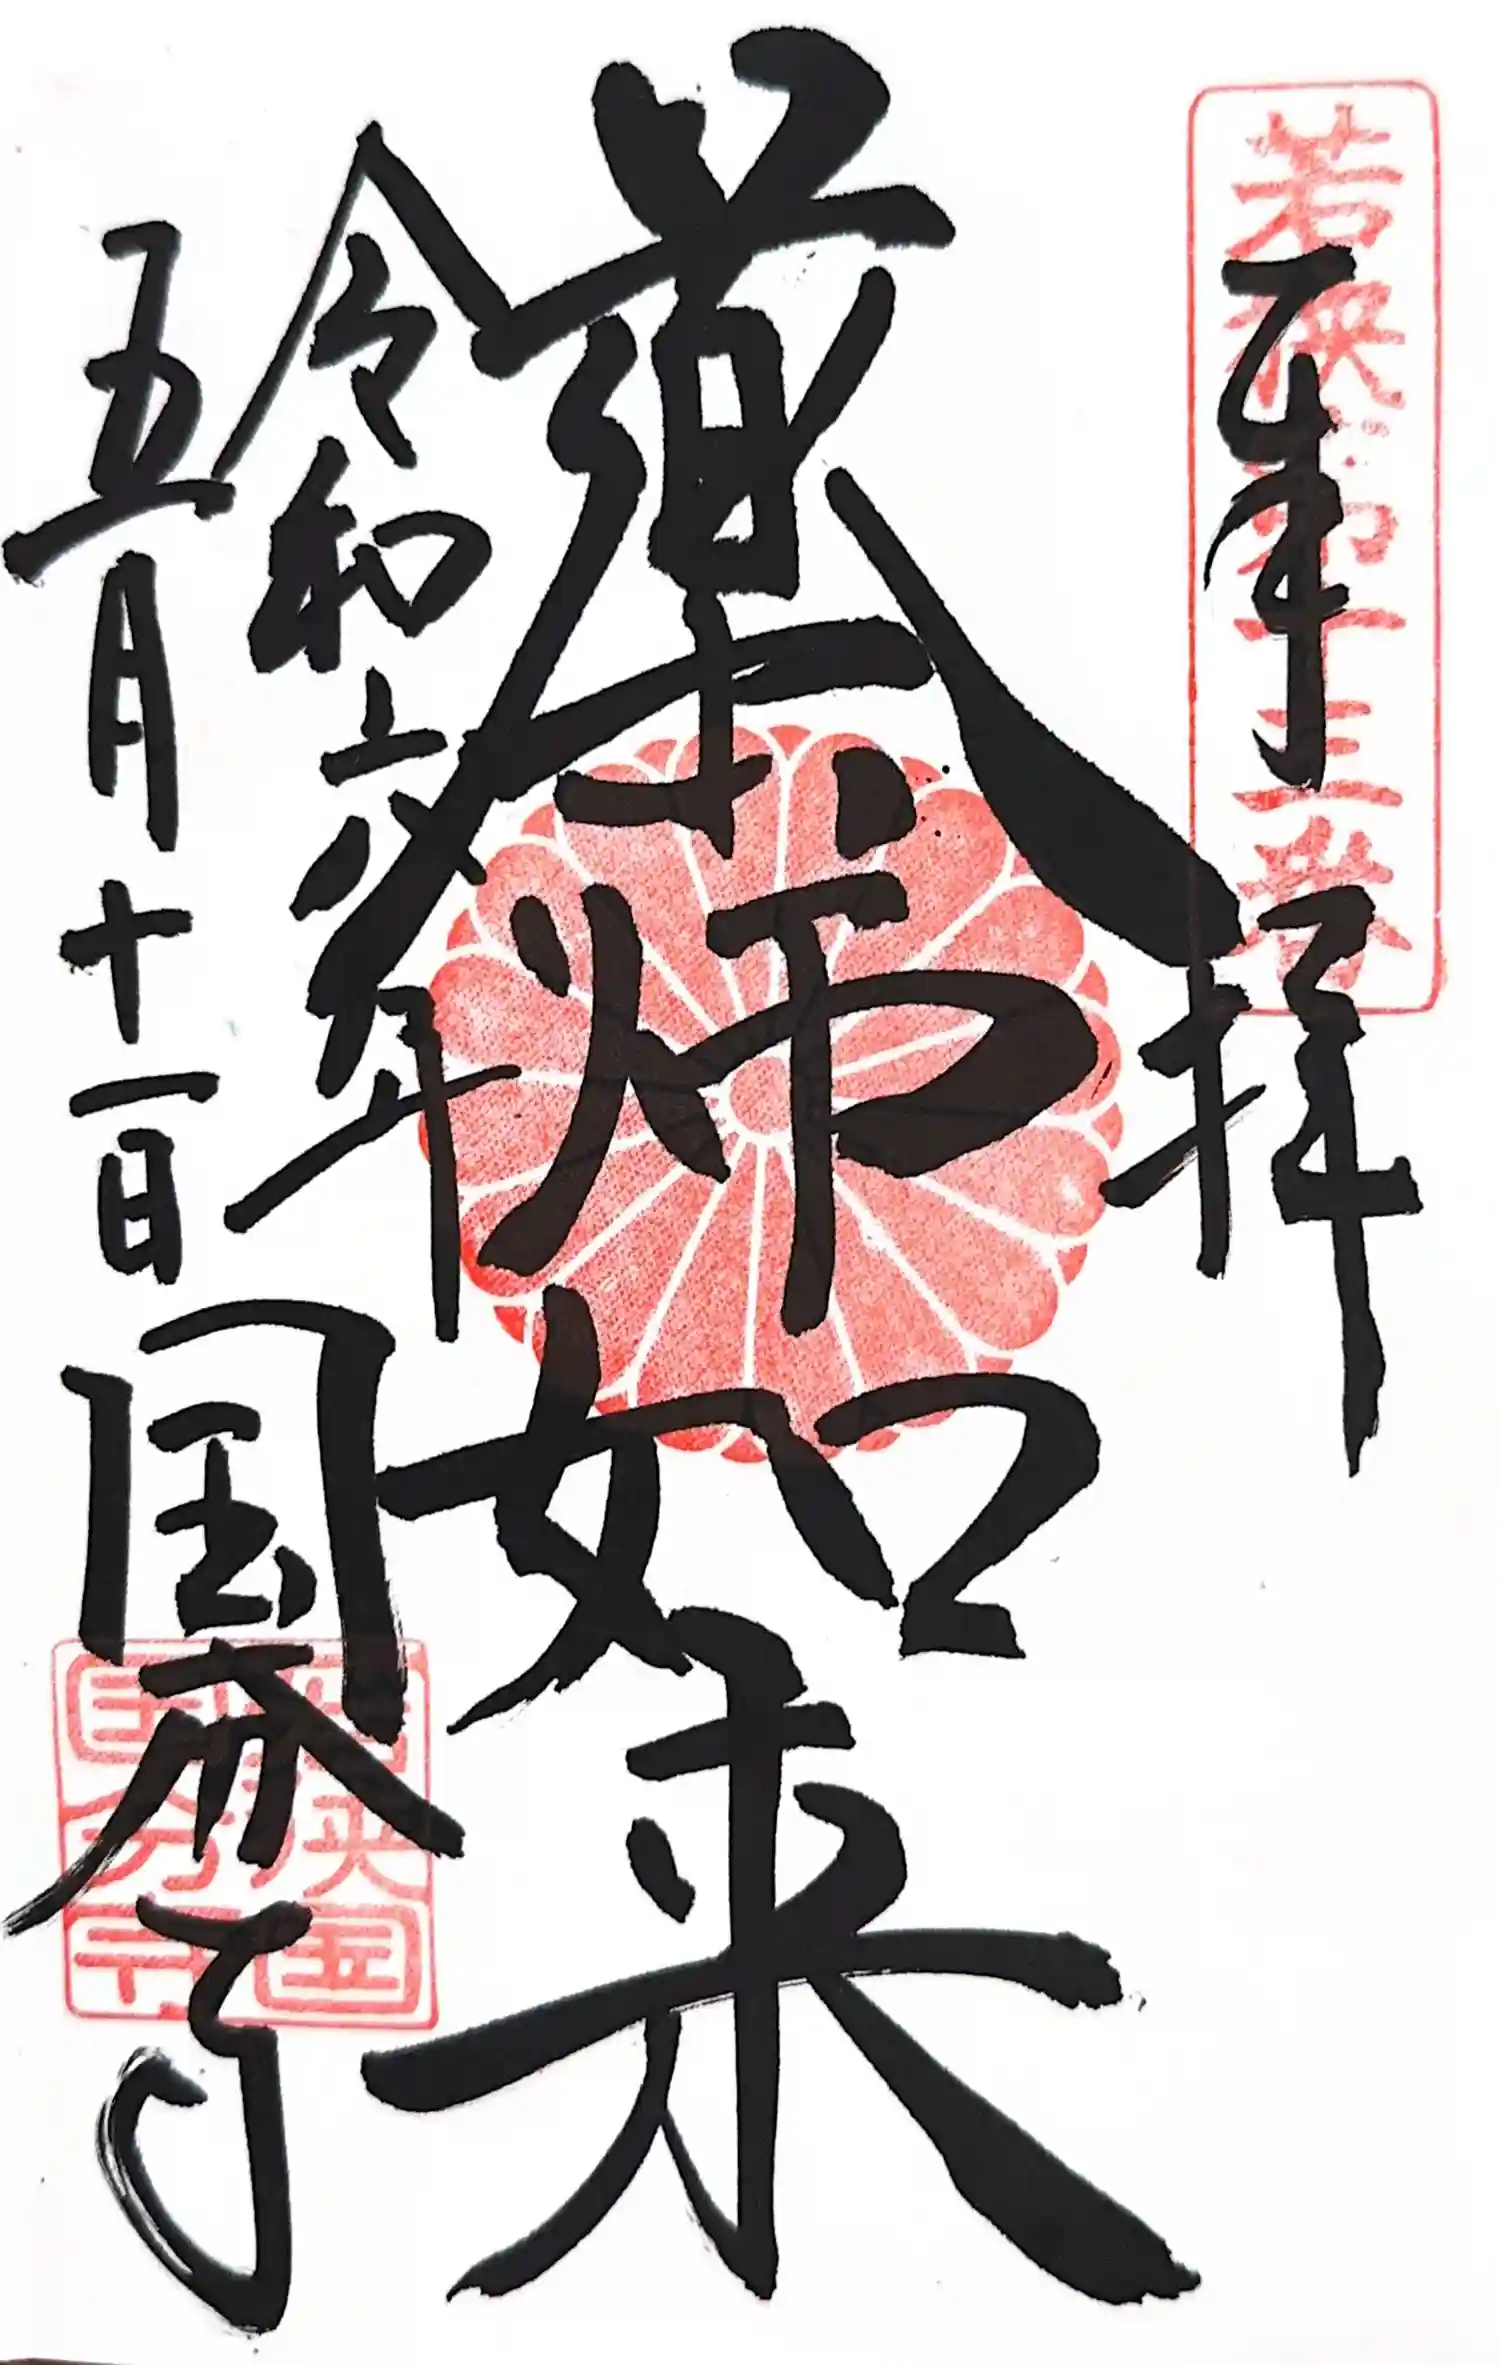 若狭第十三番
奉拝
薬师如来
令和六年
五月十一日
国分寺
若狭国
国分寺